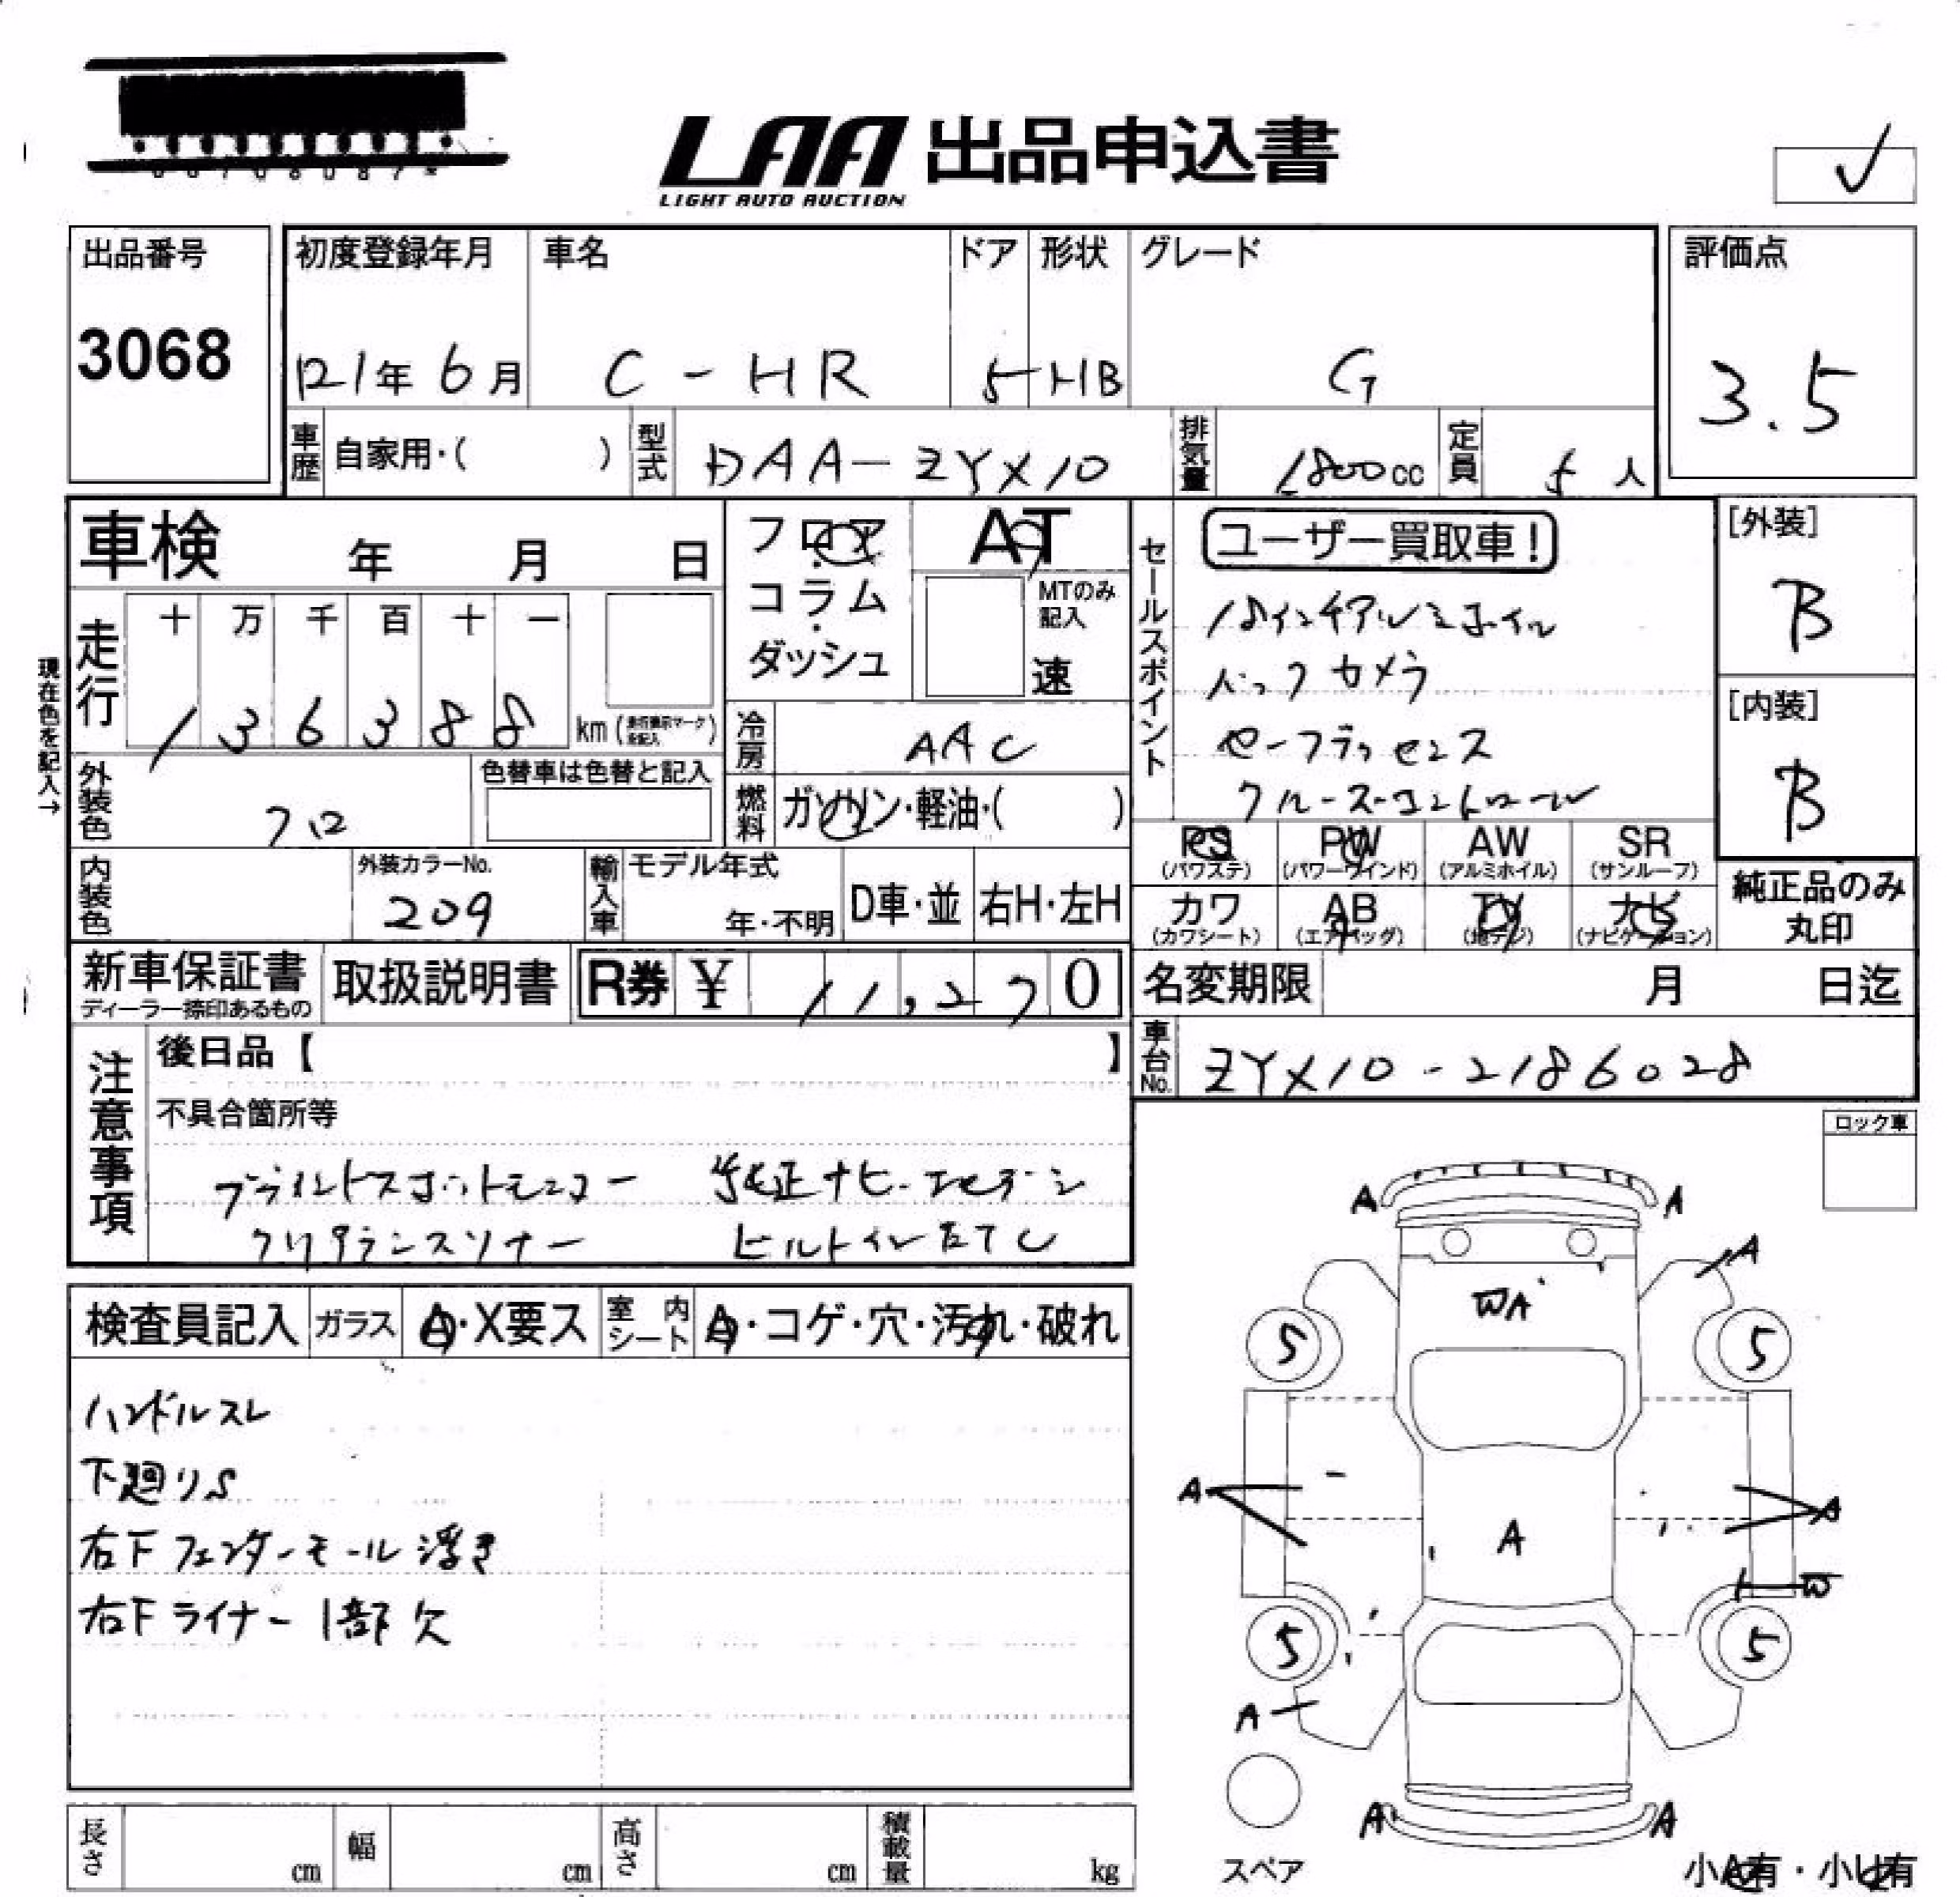 LAA 出品申込書
LIGHT AUTO AUCTION
出品番号
3068
初度登録年月
車名
ドア
形状
グレード
評価点
R21年 6月
C-HR
5
HB
G
3.5
車歴
自家用・(　　)
型式
DAA-ZYX10
排気量
1800cc
定員
5人
車検　年　月　日
フロア・コラム・ダッシュ
AT
MTのみ記入
速
セールスポイント
ユーザー買取車!
18インチアルミホイル
バックカメラ
セーフティセンス
クルーズコントロール
[外装]
B
[内装]
B
現在色を記入→
走行
十 万 千 百 十 一
1 3 6 3 8 8
km(走行表示マーク記入)
冷房
AAC
外装色
クロ
色替車は色替と記入
燃料
ガソリン・軽油・(　　)
PS
(パワステ)
PW
(パワーウインド)
AW
(アルミホイル)
SR
(サンルーフ)
内装色
外装カラーNo.
209
輸入車
モデル年式
年・不明
D車・並
右H・左H
カワ
(カワシート)
AB
(エアバッグ)
TV
(地デジ)
ナビ
(ナビゲーション)
純正品のみ丸印
新車保証書
ディーラー捺印あるもの
取扱説明書
R券
¥
11,270
名変期限
月　日迄
車台No.
ZYX10-2186028
注意事項
後日品【　　】
不具合箇所等
ブラインドスポットモニター　純正ナビ
クリアランスソナー　ビルトインETC
ロック車
検査員記入
ガラス
A・X要ス
室内シート
A・コゲ・穴・汚れ・破れ
ハンドルスレ
下廻りS
右Fフェンダーモール浮き
右Fライナー1部欠
A
A
A
WA
5
5
A
A
A
W
5
5
A
A
A
スペア
小A有・小U有
長さ
cm
幅
cm
高さ
cm
積載量
kg